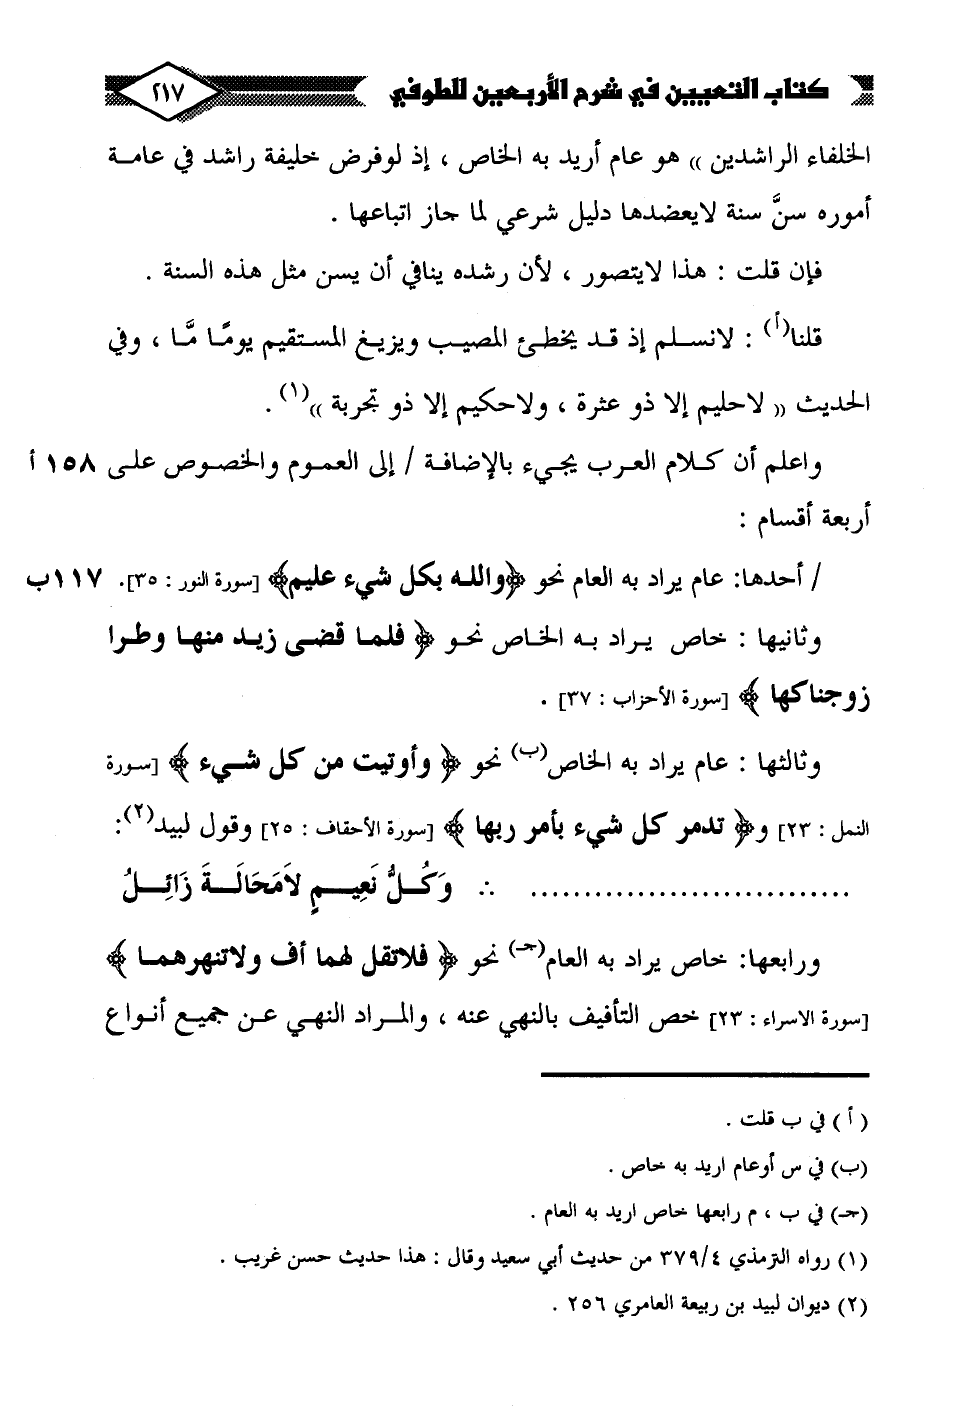 كتاب التعيين في شرح الأربعين للطوفي ٢١٧
الخلفاء الراشدين » هو عام أريد به الخاص ، إذ لوفرض خليفة راشد في عامة
أموره سنَّ سنة لايعضدها دليل شرعي لما جاز اتباعها .
فإن قلت : هذا لايتصور ، لأن رشده ينافي أن يسن مثل هذه السنة .
قلنا(أ) : لانسلم إذ قد يخطئ المصيب ويزيغ المستقيم يومًا مَّا ، وفي
الحديث « لاحليم إلا ذو عثرة ، ولاحكيم إلا ذو تجربة »(١) .
واعلم أن كلام العرب يجيء بالإضافة / إلى العموم والخصوص على ١٥٨ أ
أربعة أقسام :
/ أحدها: عام يراد به العام نحو ﴿والله بكل شيء عليم﴾ [سورة النور : ٣٥]. ١١٧ب
وثانيها : خاص يراد به الخاص نحو ﴿ فلما قضى زيد منها وطرا
زوجناكها ﴾ [سورة الأحزاب : ٣٧] .
وثالثها : عام يراد به الخاص(ب) نحو ﴿ وأوتيت من كل شيء ﴾ [سورة
النمل : ٢٣] و﴿ تدمر كل شيء بأمر ربها ﴾ [سورة الأحقاف : ٢٥] وقول لبيد(٢):
.............................. ∴ وَكُلُّ نَعِيمٍ لاَمَحَالَةَ زَائِلُ
ورابعها: خاص يراد به العام(حـ) نحو ﴿ فلاتقل لهما أف ولاتنهرهما ﴾
[سورة الاسراء : ٢٣] خص التأفيف بالنهي عنه ، والمراد النهي عن جميع أنواع
( أ ) في ب قلت .
(ب) في س أوعام اريد به خاص .
(حـ) في ب ، م رابعها خاص اريد به العام .
(١) رواه الترمذي ٣٧٩/٤ من حديث أبي سعيد وقال : هذا حديث حسن غريب .
(٢) ديوان لبيد بن ربيعة العامري ٢٥٦ .